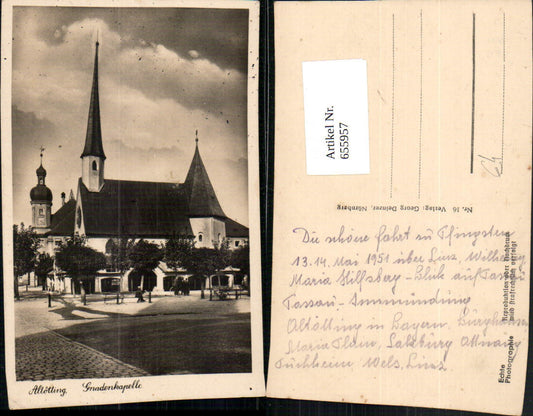 Altötting. Gnadenkapelle
Artikel Nr.
655957
Nr. 16 Verlag: Georg Deinzer, Nürnberg
Die schöne Fahrt zu Pfingsten
13. 14. Mai 1951 über Linz, Wilhering
Maria Hilfsberg - Blick auf Passau
Passau -
Altötting in Bayern. Burghausen
Maria Plain, Salzburg Attnang
Puchheim, Wels, Linz
Echte
Photographie
Reproduktion oder Nachdruck
wird strafrechtlich verfolgt